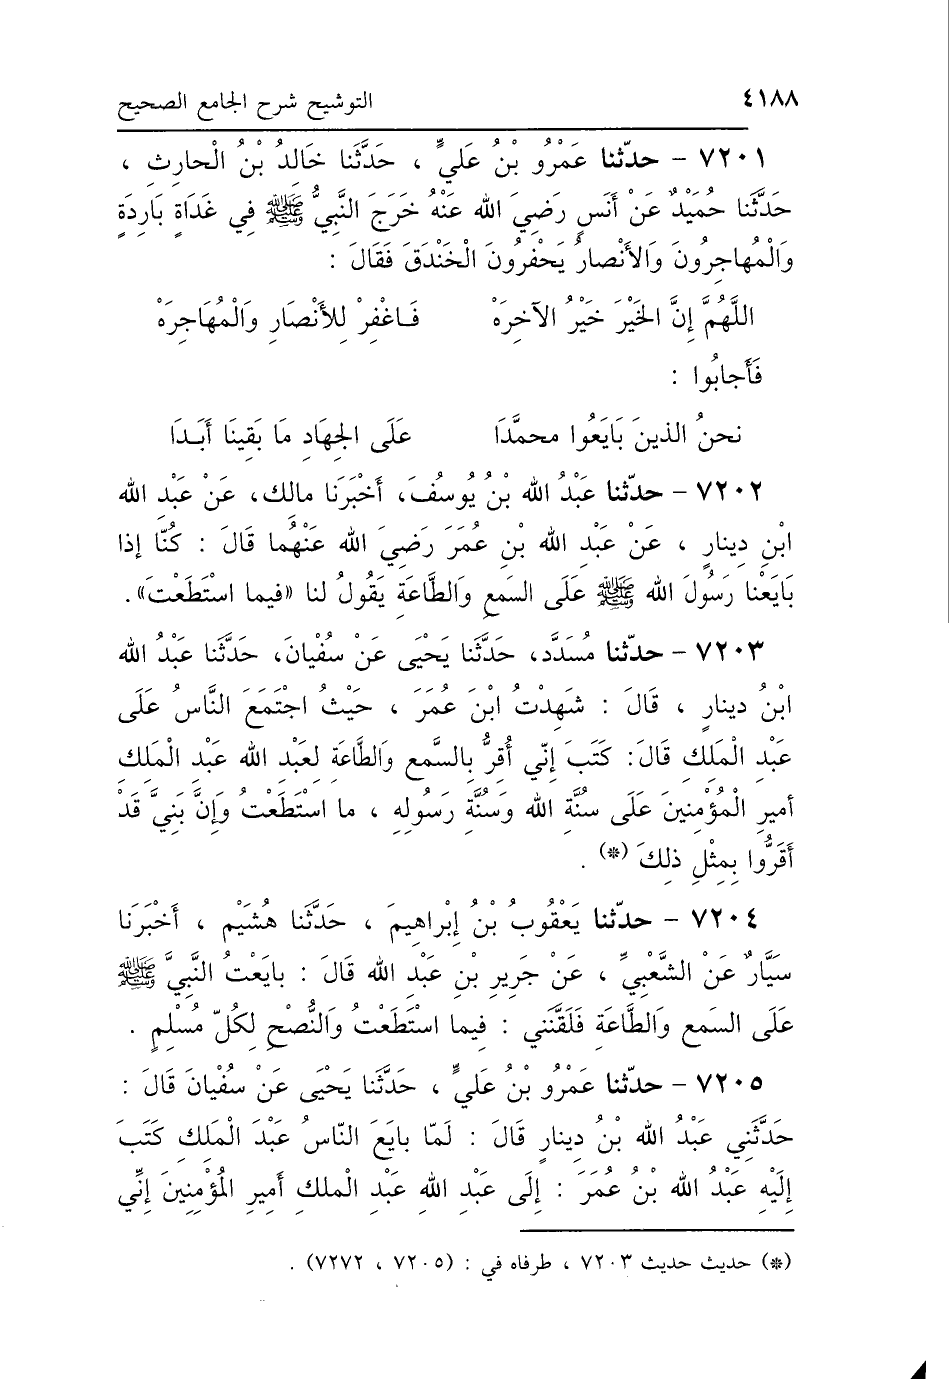 ٤١٨٨ التوشيح شرح الجامع الصحيح
٧٢٠١ - حدّثنا عَمْرُو بْنُ عَلِيٍّ ، حَدَّثَنا خَالدُ بْنُ الْحارِثِ ،
حَدَّثَنا حُمَيْدٌ عَنْ أَنَسٍ رَضِيَ الله عَنْهُ خَرَجَ النَّبِيُّ ﷺ فِي غَدَاةٍ بَارِدَةٍ
وَالْمُهاجِرُونَ وَالأَنْصارُ يَحْفِرُونَ الْخَنْدَقَ فَقَالَ :
اللَّهُمَّ إِنَّ الخَيْرَ خَيْرُ الآخِرَهْ فَاغْفِرْ لِلأَنْصَارِ وَالْمُهَاجِرَهْ
فَأَجابُوا :
نحنُ الذينَ بَايَعُوا محمَّدَا عَلَى الجِهَادِ مَا بَقِينَا أَبَدَا
٧٢٠٢ - حدّثنا عَبْدُ الله بْنُ يُوسُفَ، أَخْبَرَنَا مالك، عَنْ عَبْدِ الله
ابْنِ دِينارٍ ، عَنْ عَبْدِ الله بْنِ عُمَرَ رَضِيَ الله عَنْهُما قَالَ : كُنّا إذا
بَايَعْنا رَسُولَ الله ﷺ عَلَى السَمعِ وَالطَّاعَةِ يَقُولُ لنا «فيما اسْتَطَعْتَ» .
٧٢٠٣ - حدّثنا مُسَدَّد، حَدَّثَنا يَحْيَى عَنْ سُفْيانَ، حَدَّثَنا عَبدُ الله
ابْنُ دينارٍ ، قَالَ : شَهِدْتُ ابْنَ عُمَرَ ، حَيْثُ اجْتَمَعَ النَّاسُ عَلَى
عَبْدِ الْمَلِكِ قَالَ: كَتَبَ إنّي أُقرُّ بِالسَّمعِ وَالطَّاعة لعَبْدِ الله عَبْدِ الْمَلك
أميرِ الْمُؤْمِنينَ عَلَى سُنَّةِ الله وَسُنَّةِ رَسُولِهِ ، ما اسْتَطَعْتُ وَإنَّ بَنِيَّ قَدْ
أَقَرُّوا بِمِثْلِ ذلِكَ (*) .
٧٢٠٤ - حدّثنا يَعْقُوبُ بْنُ إبْراهِيمَ ، حَدَّثَنا هُشَيْم ، أَخْبَرَنا
سَيَّارٌ عَنْ الشَّعْبِيِّ ، عَنْ جَرِيرِ بْنِ عَبْدِ الله قَالَ : بايَعْتُ النَّبِيَّ ﷺ
عَلَى السَمعِ وَالطَّاعَةِ فَلَقَّنَني : فيما اسْتَطَعْتُ وَالنُّصْحِ لِكُلّ مُسْلِمٍ .
٧٢٠٥ - حدّثنا عَمْرُو بْنُ عَلِيٍّ ، حَدَّثَنا يَحْيَى عَنْ سُفْيانَ قَالَ :
حَدَّثَنِي عَبْدُ الله بْنُ دينارٍ قَالَ : لَمّا بايَعَ النّاسُ عَبْدَ الْمَلِكِ كَتَبَ
إِلَيْهِ عَبْدُ الله بْنُ عُمَرَ : إلَى عَبْدِ الله عَبْدِ الملكِ أميرِ المُؤْمِنِينَ إنِّي
(*) حديث حديث ٧٢٠٣ ، طرفاه في : (٧٢٠٥ ، ٧٢٧٢) .